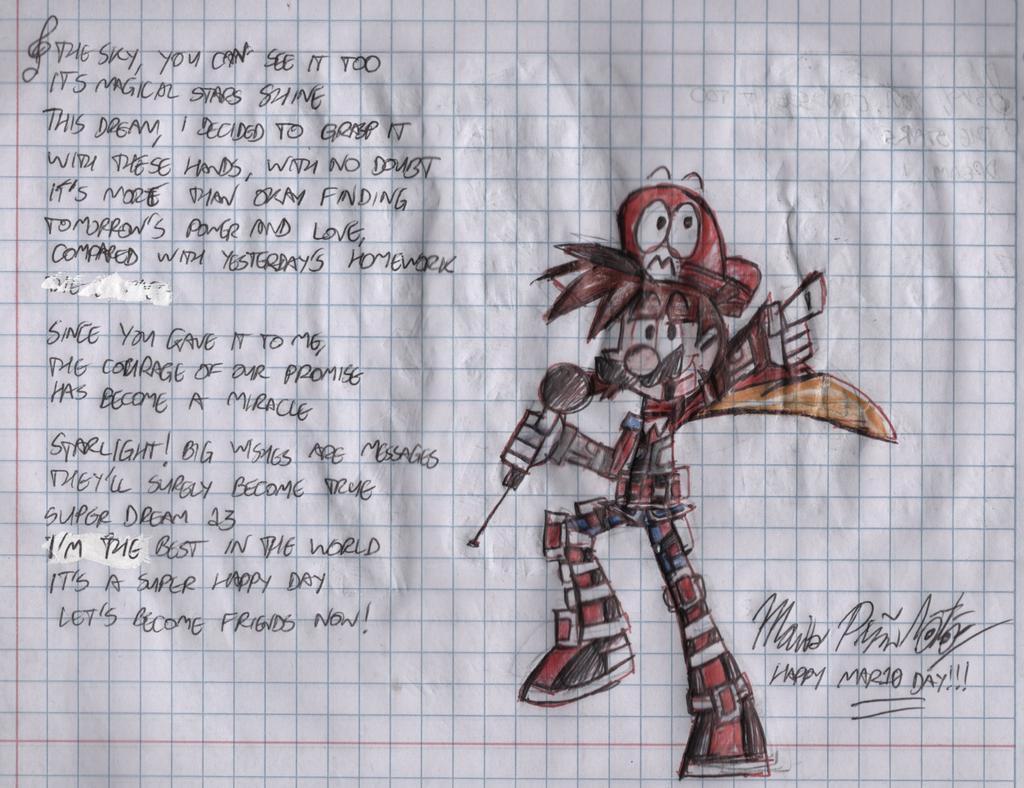 THE SKY, YOU CAN SEE IT TOO
ITS MAGICAL STARS SHINE
THIS DREAM, I DECIDED TO GRASP IT
WITH THESE HANDS, WITH NO DOUBT
IT'S MORE THAN OKAY FINDING
TOMORROW'S POWER AND LOVE,
COMPARED WITH YESTERDAY'S HOMEWORK
SINCE YOU GAVE IT TO ME,
THE COURAGE OF OUR PROMISE
HAS BECOME A MIRACLE
STARLIGHT! BIG WISHES ARE MESSAGES
THEY'LL SURELY BECOME TRUE
SUPER DREAM 23
I'M THE BEST IN THE WORLD
IT'S A SUPER HAPPY DAY
LET'S BECOME FRIENDS NOW!
HAPPY MAR10 DAY!!!